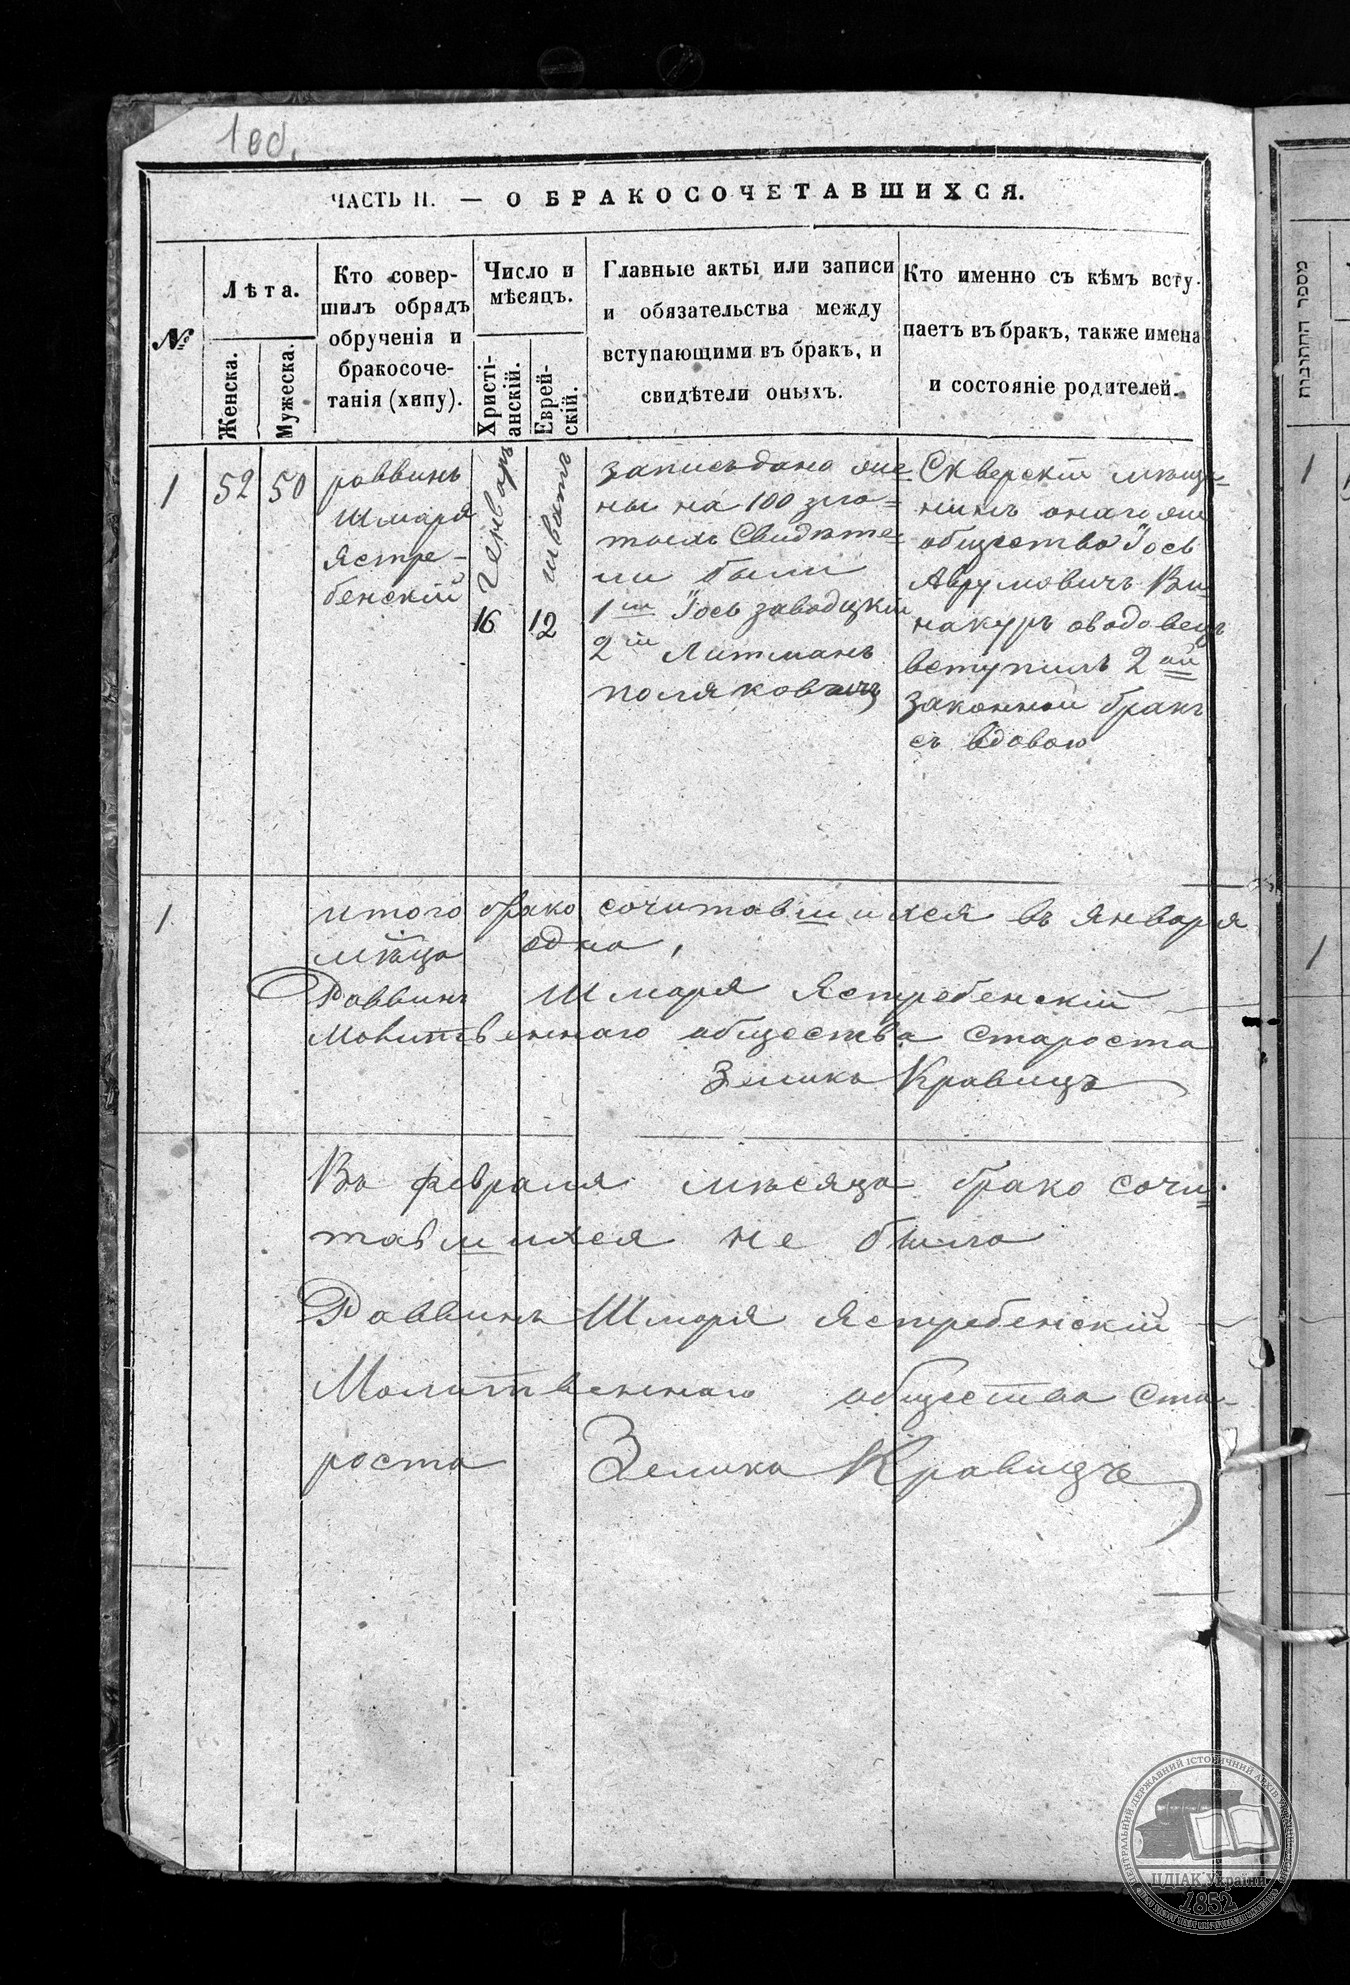 1 об.
ЧАСТЬ II. — О БРАКОСОЧЕТАВШИХСЯ.
№
Лѣта.
Женска.
Мужеска.
Кто совер-
шилъ обрядъ
обрученія и
бракосоче-
танія (хипу).
Число и
мѣсяцъ.
Христі-
анскій.
Еврей-
скій.
Главные акты или записи
и обязательства между
вступающими въ бракъ, и
свидѣтели оныхъ.
Кто именно съ кѣмъ всту-
паетъ въ бракъ, также имена
и состояніе родителей.
1
52
50
раввинъ
Шмаря
Ястре-
бенскій
Генваръ
16
шватъ
12
запись дана же=
ны на 100 зло=
тыхъ Свидѣте=
ли были
1ый Іось заводцкій
2ій Литманъ
поляковичъ
Сквирскій мѣща=
нинъ онаго же
общества Іось
Аврумовичъ Ви=
накуръ овдовецъ
вступилъ 2ой
законной бракъ
съ вдовою
1
итого брако сочитавшихся въ января
мѣца одна,
Раввинъ Шмаря Ястребенскій
Молитвеннаго общества староста
Зелика Кравицъ
Въ февраля мѣсяца брако сочи=
тавшихся не было
Раввинъ Шмаря Ястребенскій
Молитвеннаго общества ста-
роста Зелика Кравицъ
מספר החתונות
1
1
ЦЕНТРАЛЬНИЙ ДЕРЖАВНИЙ ІСТОРИЧНИЙ АРХІВ УКРАЇНИ
ЦДІАК України
1852